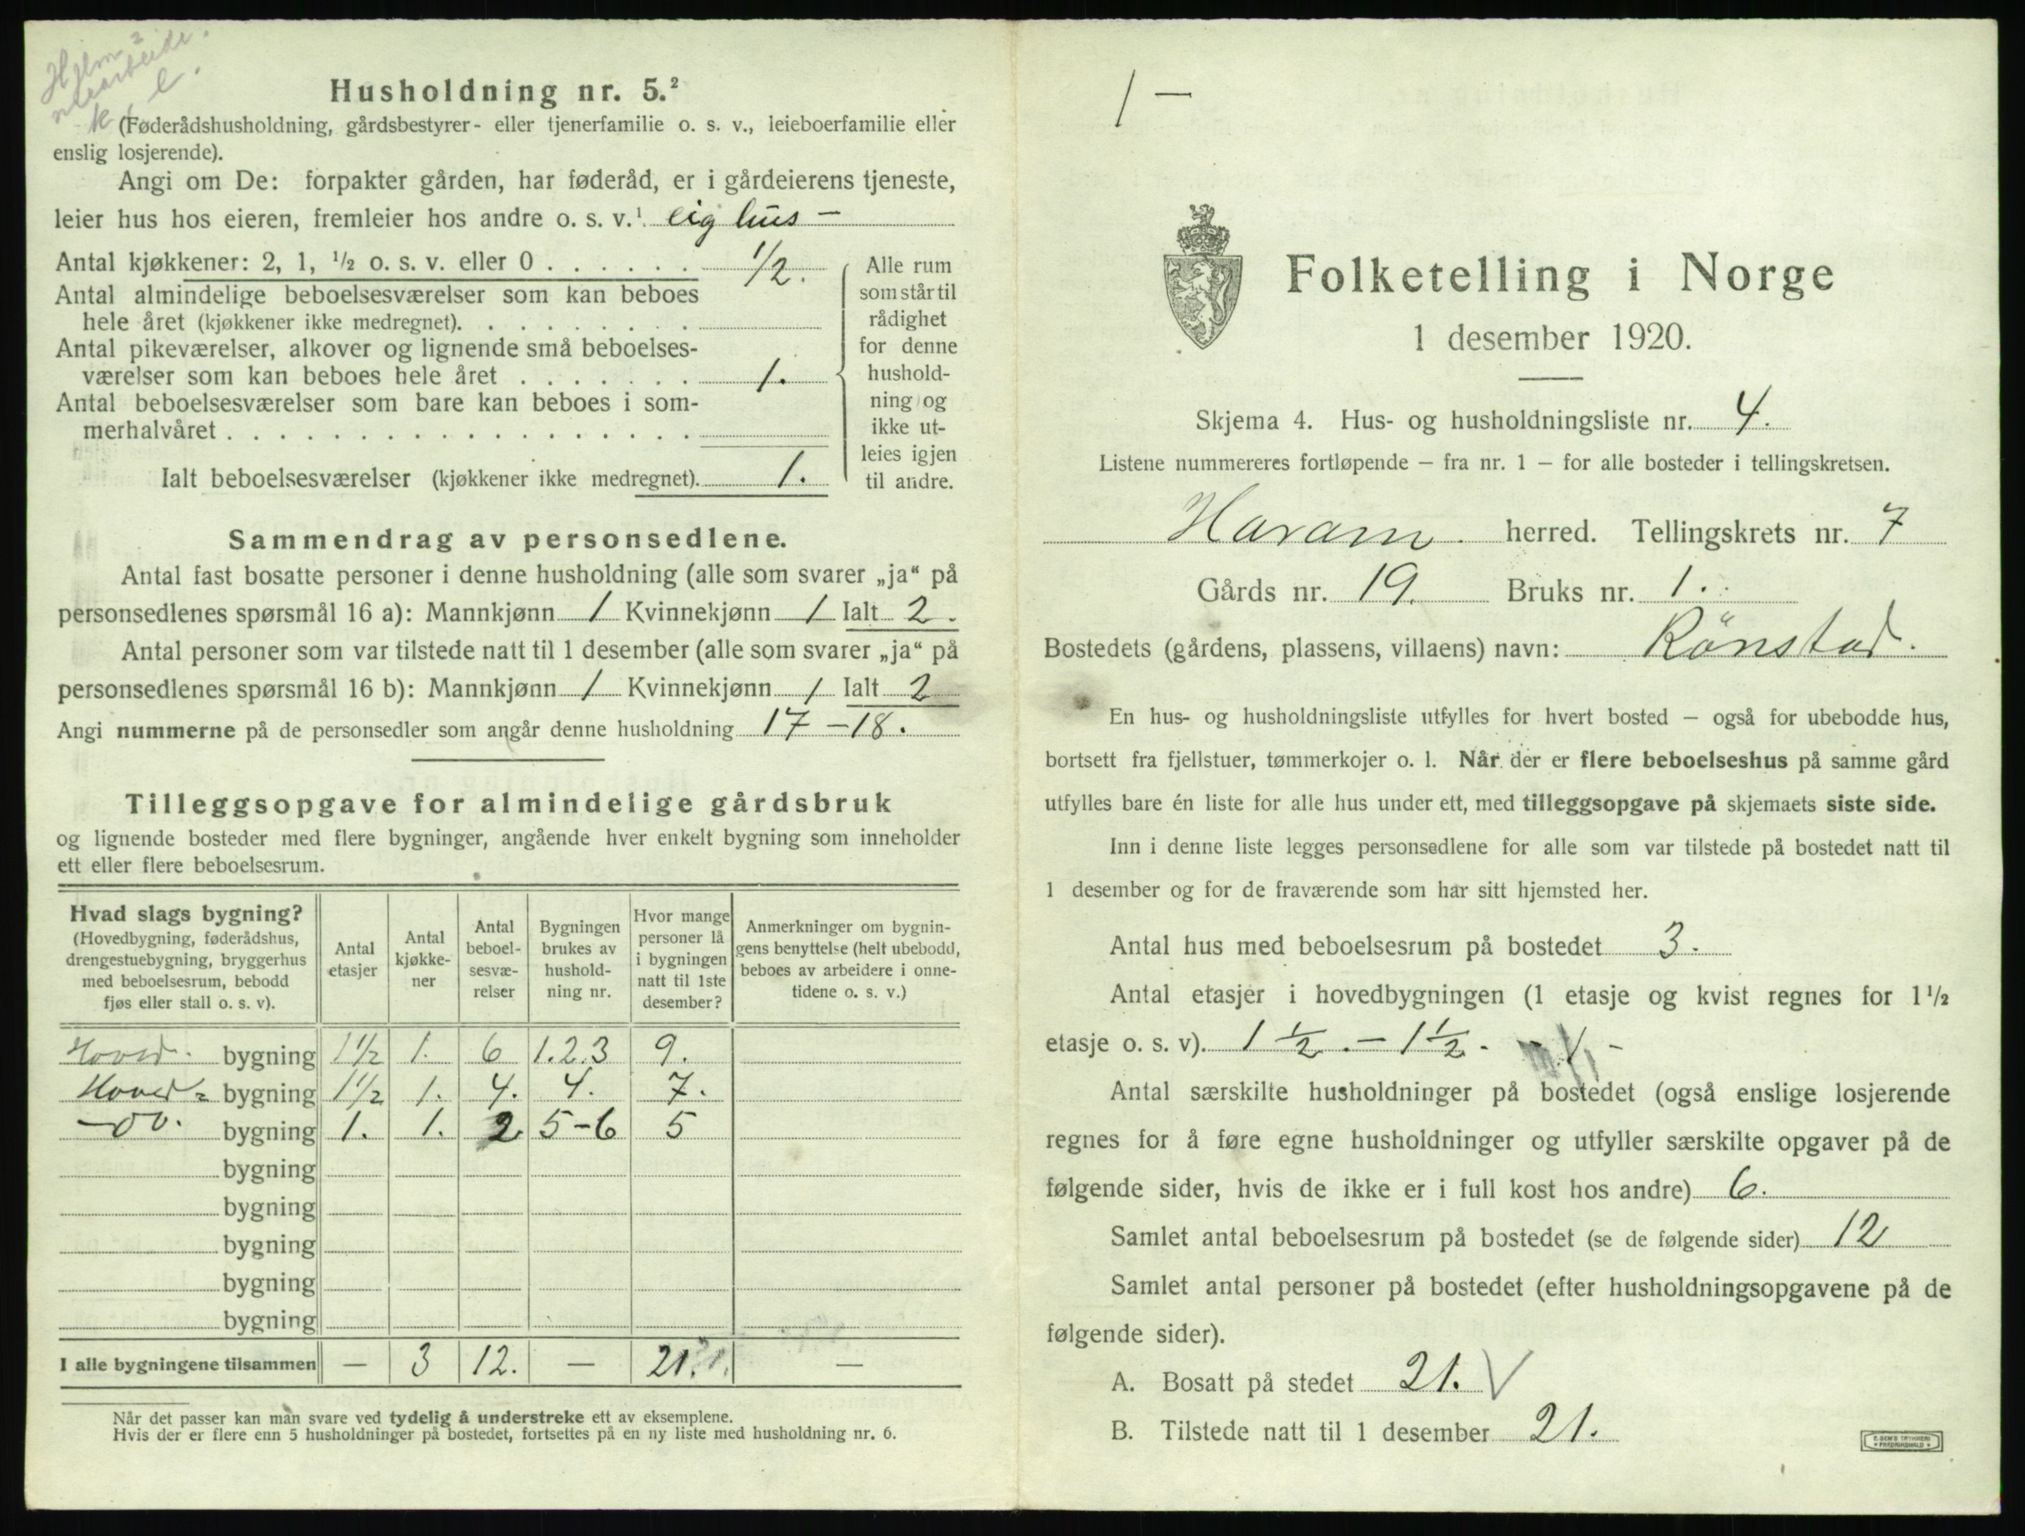 Husholdning nr. 5.²
(Føderådshusholdning, gårdsbestyrer- eller tjenerfamilie o. s. v., leieboerfamilie eller
enslig losjerende).
Angi om De: forpakter gården, har føderåd, er i gårdeierens tjeneste,
leier hus hos eieren, fremleier hos andre o. s. v.¹ eig hus —
Antal kjøkkener: 2, 1, ½ o. s. v. eller 0 . . . . . . ½.
Antal almindelige beboelsesværelser som kan beboes
hele året (kjøkkener ikke medregnet). . . . . . . . .
Antal pikeværelser, alkover og lignende små beboelses-
værelser som kan beboes hele året . . . . . . . 1.
Antal beboelsesværelser som bare kan beboes i som-
merhalvåret . . . . . . . . . . . . . . . . . .
Ialt beboelsesværelser (kjøkkener ikke medregnet). 1.
Alle rum
som står til
rådighet
for denne
hushold-
ning og
ikke ut-
leies igjen
til andre.
Sammendrag av personsedlene.
Antal fast bosatte personer i denne husholdning (alle som svarer „ja“ på
personsedlenes spørsmål 16 a): Mannkjønn 1 Kvinnekjønn 1 Ialt 2.
Antal personer som var tilstede natt til 1 desember (alle som svarer „ja“ på
personsedlenes spørsmål 16 b): Mannkjønn 1 Kvinnekjønn 1 Ialt 2
Angi nummerne på de personsedler som angår denne husholdning 17 - 18.
Tilleggsopgave for almindelige gårdsbruk
og lignende bosteder med flere bygninger, angående hver enkelt bygning som inneholder
ett eller flere beboelsesrum.
Hvad slags bygning?
(Hovedbygning, føderådshus,
drengestuebygning, bryggerhus
med beboelsesrum, bebodd
fjøs eller stall o. s. v).
Antal
etasjer
Antal
kjøkke-
ner
Antal
beboel-
sesvæ-
relser
Bygningen
brukes av
hushold-
ning nr.
Hvor mange
personer lå
i bygningen
natt til 1ste
desember?
Anmerkninger om bygnin-
gens benyttelse (helt ubebodd,
beboes av arbeidere i onne-
tidene o. s. v.)
Hoved. bygning 1½ 1. 6 1.2.3 9.
Hoved- bygning 1½ 1. 4. 4. 7.
—oo. bygning 1. 1. 2 5-6 5
bygning
bygning
bygning
bygning
bygning
I alle bygningene tilsammen — 3 12. — 21. —
Når det passer kan man svare ved tydelig å understreke ett av eksemplene.
Hvis der er flere enn 5 husholdninger på bostedet, fortsettes på en ny liste med husholdning nr. 6.
1 —
Folketelling i Norge
1 desember 1920.
Skjema 4. Hus- og husholdningsliste nr. 4.
Listene nummereres fortløpende — fra nr. 1 — for alle bosteder i tellingskretsen.
Haram. herred. Tellingskrets nr. 7
Gårds nr. 19. Bruks nr. 1.
Bostedets (gårdens, plassens, villaens) navn: Rönstad.
En hus- og husholdningsliste utfylles for hvert bosted — også for ubebodde hus,
bortsett fra fjellstuer, tømmerkojer o. l. Når der er flere beboelseshus på samme gård
utfylles bare én liste for alle hus under ett, med tilleggsopgave på skjemaets siste side.
Inn i denne liste legges personsedlene for alle som var tilstede på bostedet natt til
1 desember og for de fraværende som har sitt hjemsted her.
Antal hus med beboelsesrum på bostedet 3.
Antal etasjer i hovedbygningen (1 etasje og kvist regnes for 1½
etasje o. s. v). 1½. — 1½.
Antal særskilte husholdninger på bostedet (også enslige losjerende
regnes for å føre egne husholdninger og utfyller særskilte opgaver på de
følgende sider, hvis de ikke er i full kost hos andre) 6.
Samlet antal beboelsesrum på bostedet (se de følgende sider) 12
Samlet antal personer på bostedet (efter husholdningsopgavene på de
følgende sider).
A. Bosatt på stedet 21. √
B. Tilstede natt til 1 desember 21.